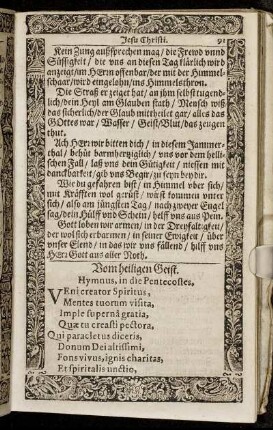 Jesu Christi. 91
Kein Zung außsprechen mag / die Frewd vnnd
Süssigkeit / die vns an diesen Tag klärlich wird
anzeigt / im HErrn offenbar / der mit der Himmel-
schaar / wird eingelohn / ins Himmelsthron.
Die Straß er zeiget hat / an jhm selbst tugend-
lich / dein Heyl am Glauben stath / Mensch wiß
das sicherlich / der Glaub mittheilet gar / alles das
GOttes war / Wasser / Geist / Blut / das zeugen
thut.
Ach HErr wir bitten dich / in diesem Jammer-
thal / behüt barmhertziglich / vns vor dem helli-
schen Fall / laß vns dein Gütigkeit / niessen mit
danckbarkeit / gib vns Begir / zu seyn bey dir.
Wie du gefahren bist / in Himmel vber sich /
mit Kräfften wol gerüst / wirst kommen vnter
sich / also am jüngsten Tag / nach zweyer Engel
sag / dein Hülff vnd Schein / helff vns aus Pein.
Gott loben wir armen / in der Dreyfaltigkeit /
der wol sich erbarmen / in seiner Ewigkeit / über
vnser Elend / in das wir vns fällend / hilff vns
HErr Gott aus aller Noth.
Vom heiligen Geist.
Hymnus, in die Pentecostes,
VEni creator Spiritus,
Mentes tuorum visita,
Imple supernâ gratia,
Quæ tu creasti pectora,
Qui paracletus diceris,
Donum Dei altissimi,
Fons vivus, ignis charitas,
Et spiritalis unctio,